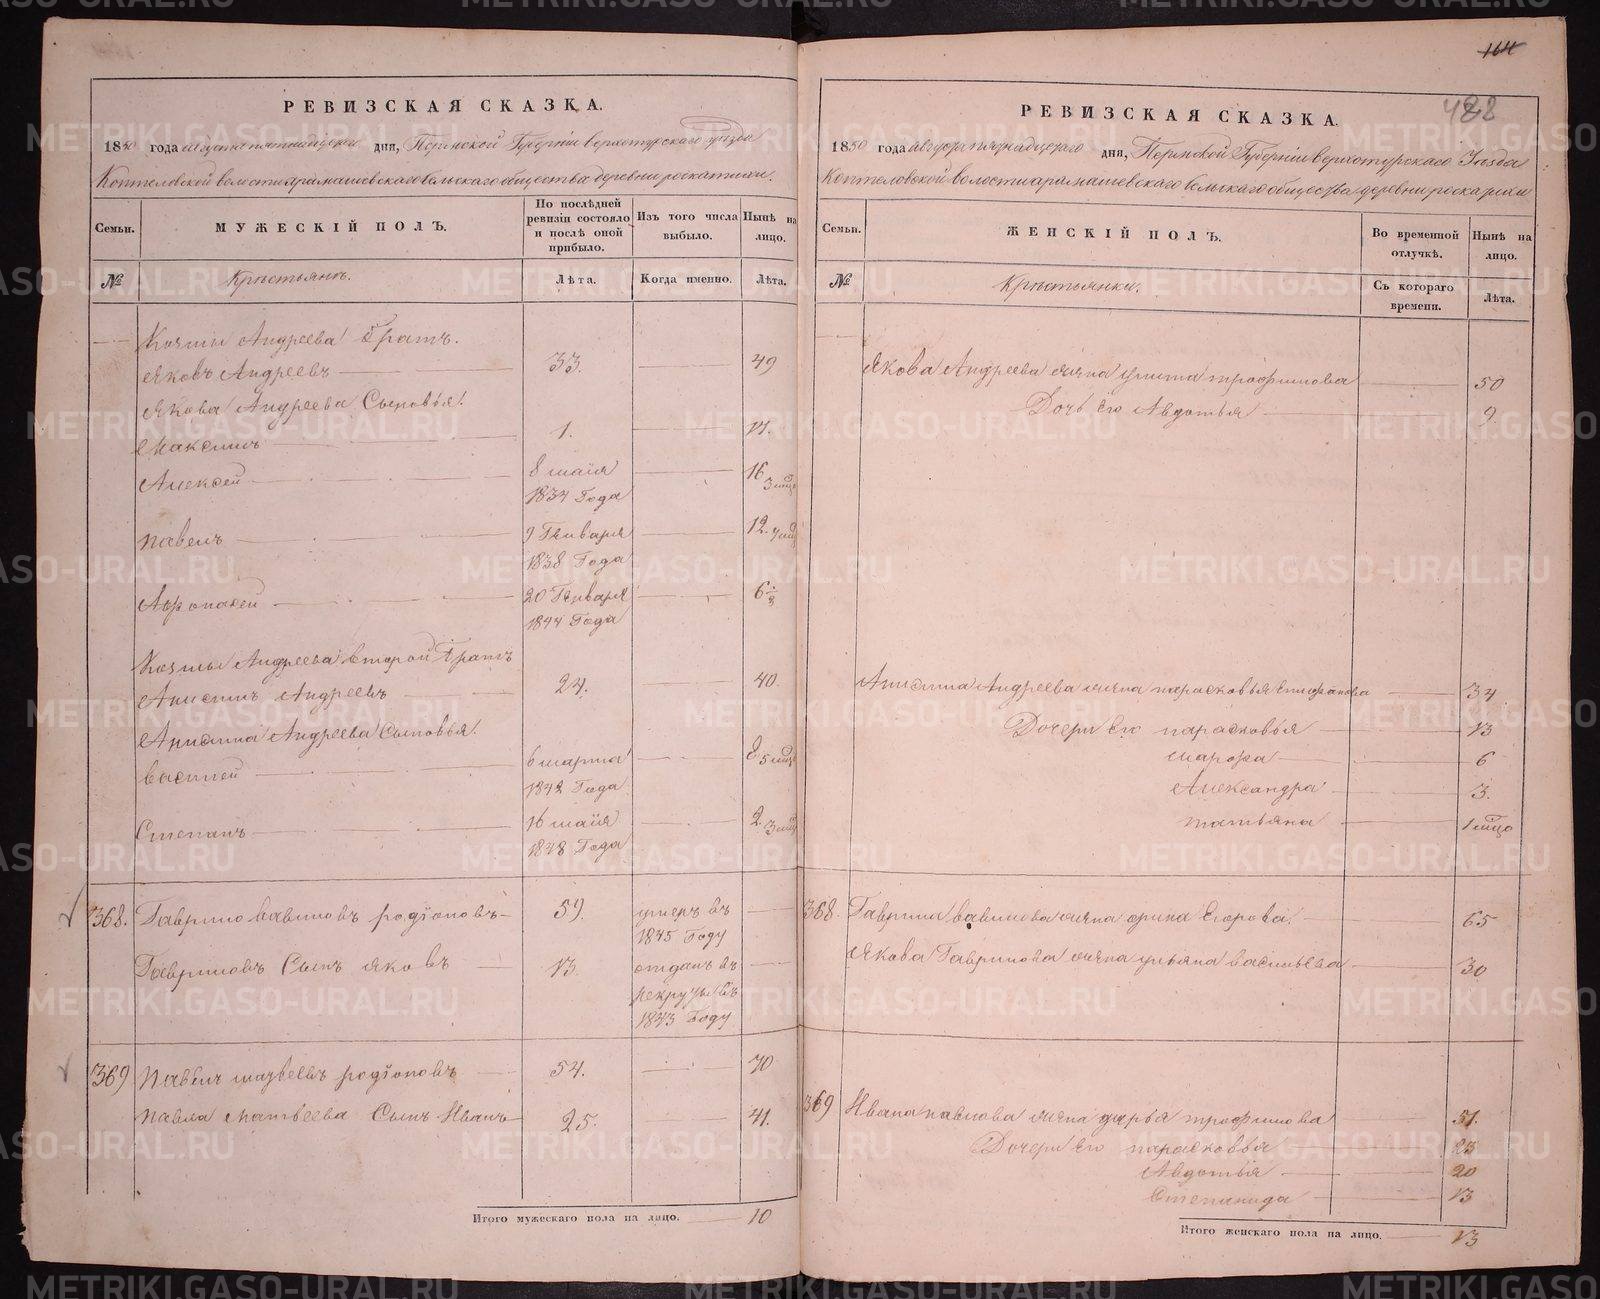 РЕВИЗСКАЯ СКАЗКА.
1850 года августа пятнадцатого дня, Пермской Губернiи верхотурского уезда
Коптеловской волости арамашевскаго сельскаго общества деревни роскатихи.
Семьи.
МУЖЕСКIЙ ПОЛЪ.
По послѣдней ревизiи состояло и послѣ оной прибыло.
Изъ того числа выбыло.
Нынѣ на лицо.
№
Крестьянъ.
Лѣта.
Когда именно.
Лѣта.
Козмы Андреева братъ.
Яковъ Андреевъ 33. 49
Якова Андреева Сыновья.
Максимъ 1. 17.
Алексей 8 маiя 1834 Года 16 3 мцъ
павелъ 9 Генваря 1838 Года 12. 7 мцъ
Афонасей 20 Генваря 1844 Года 6 ½
Козмы Андреева второй братъ
Анисимъ Андреевъ 24. 40.
Анисима Андреева Сыновья.
василей 6 марта 1842 Года 8 5 мцъ
Степанъ 16 маiя 1848 Года 2. 3 мцъ
368. Гаврило вавиловъ родiоновъ 59. умеръ въ 1845 Году
Гавриловъ Сынъ яковъ 13. отданъ въ рекруты въ 1843 Году
369 Павелъ матвеевъ родiоновъ 54. 70
павла матвеева Сынъ Иванъ 25. 41.
Итого мужескаго пола на лицо. 10
164
488
РЕВИЗСКАЯ СКАЗКА.
1850 года августа пятнадцатого дня, Пермской Губернiи верхотурскаго уезда
Коптеловской волости арамашевскаго сельскаго общества деревни роскатихи
Семьи.
ЖЕНСКIЙ ПОЛЪ.
Во временной отлучкѣ.
Нынѣ на лицо.
№
Крестьянки.
Съ котораго времени.
Лѣта.
Якова Андреева жена улита трофимова 50
Дочь его Авдотья 9
Анисима Андреева жена парасковья Епифанова 34
Дочери его парасковья 13
марфа 6
Александра 3.
татьяна 1 мцо
368. Гаврила вавилова жена орина Егорова. 65
Якова Гаврилова жена ульяна васильева 30
369 Ивана павлова жена дарья трофимова 51.
Дочери его парасковья 23
Авдотья 20
Степанида 13
Итого женскаго пола на лицо. 13
METRIKI.GASO-URAL.RU